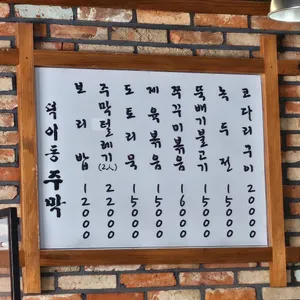 덕이동 주막
보리밥 12000
주막털레기(2人) 12000
도토리묵 15000
제육볶음 15000
쭈꾸미볶음 16000
뚝배기불고기 15000
녹두전 15000
코다리구이 20000